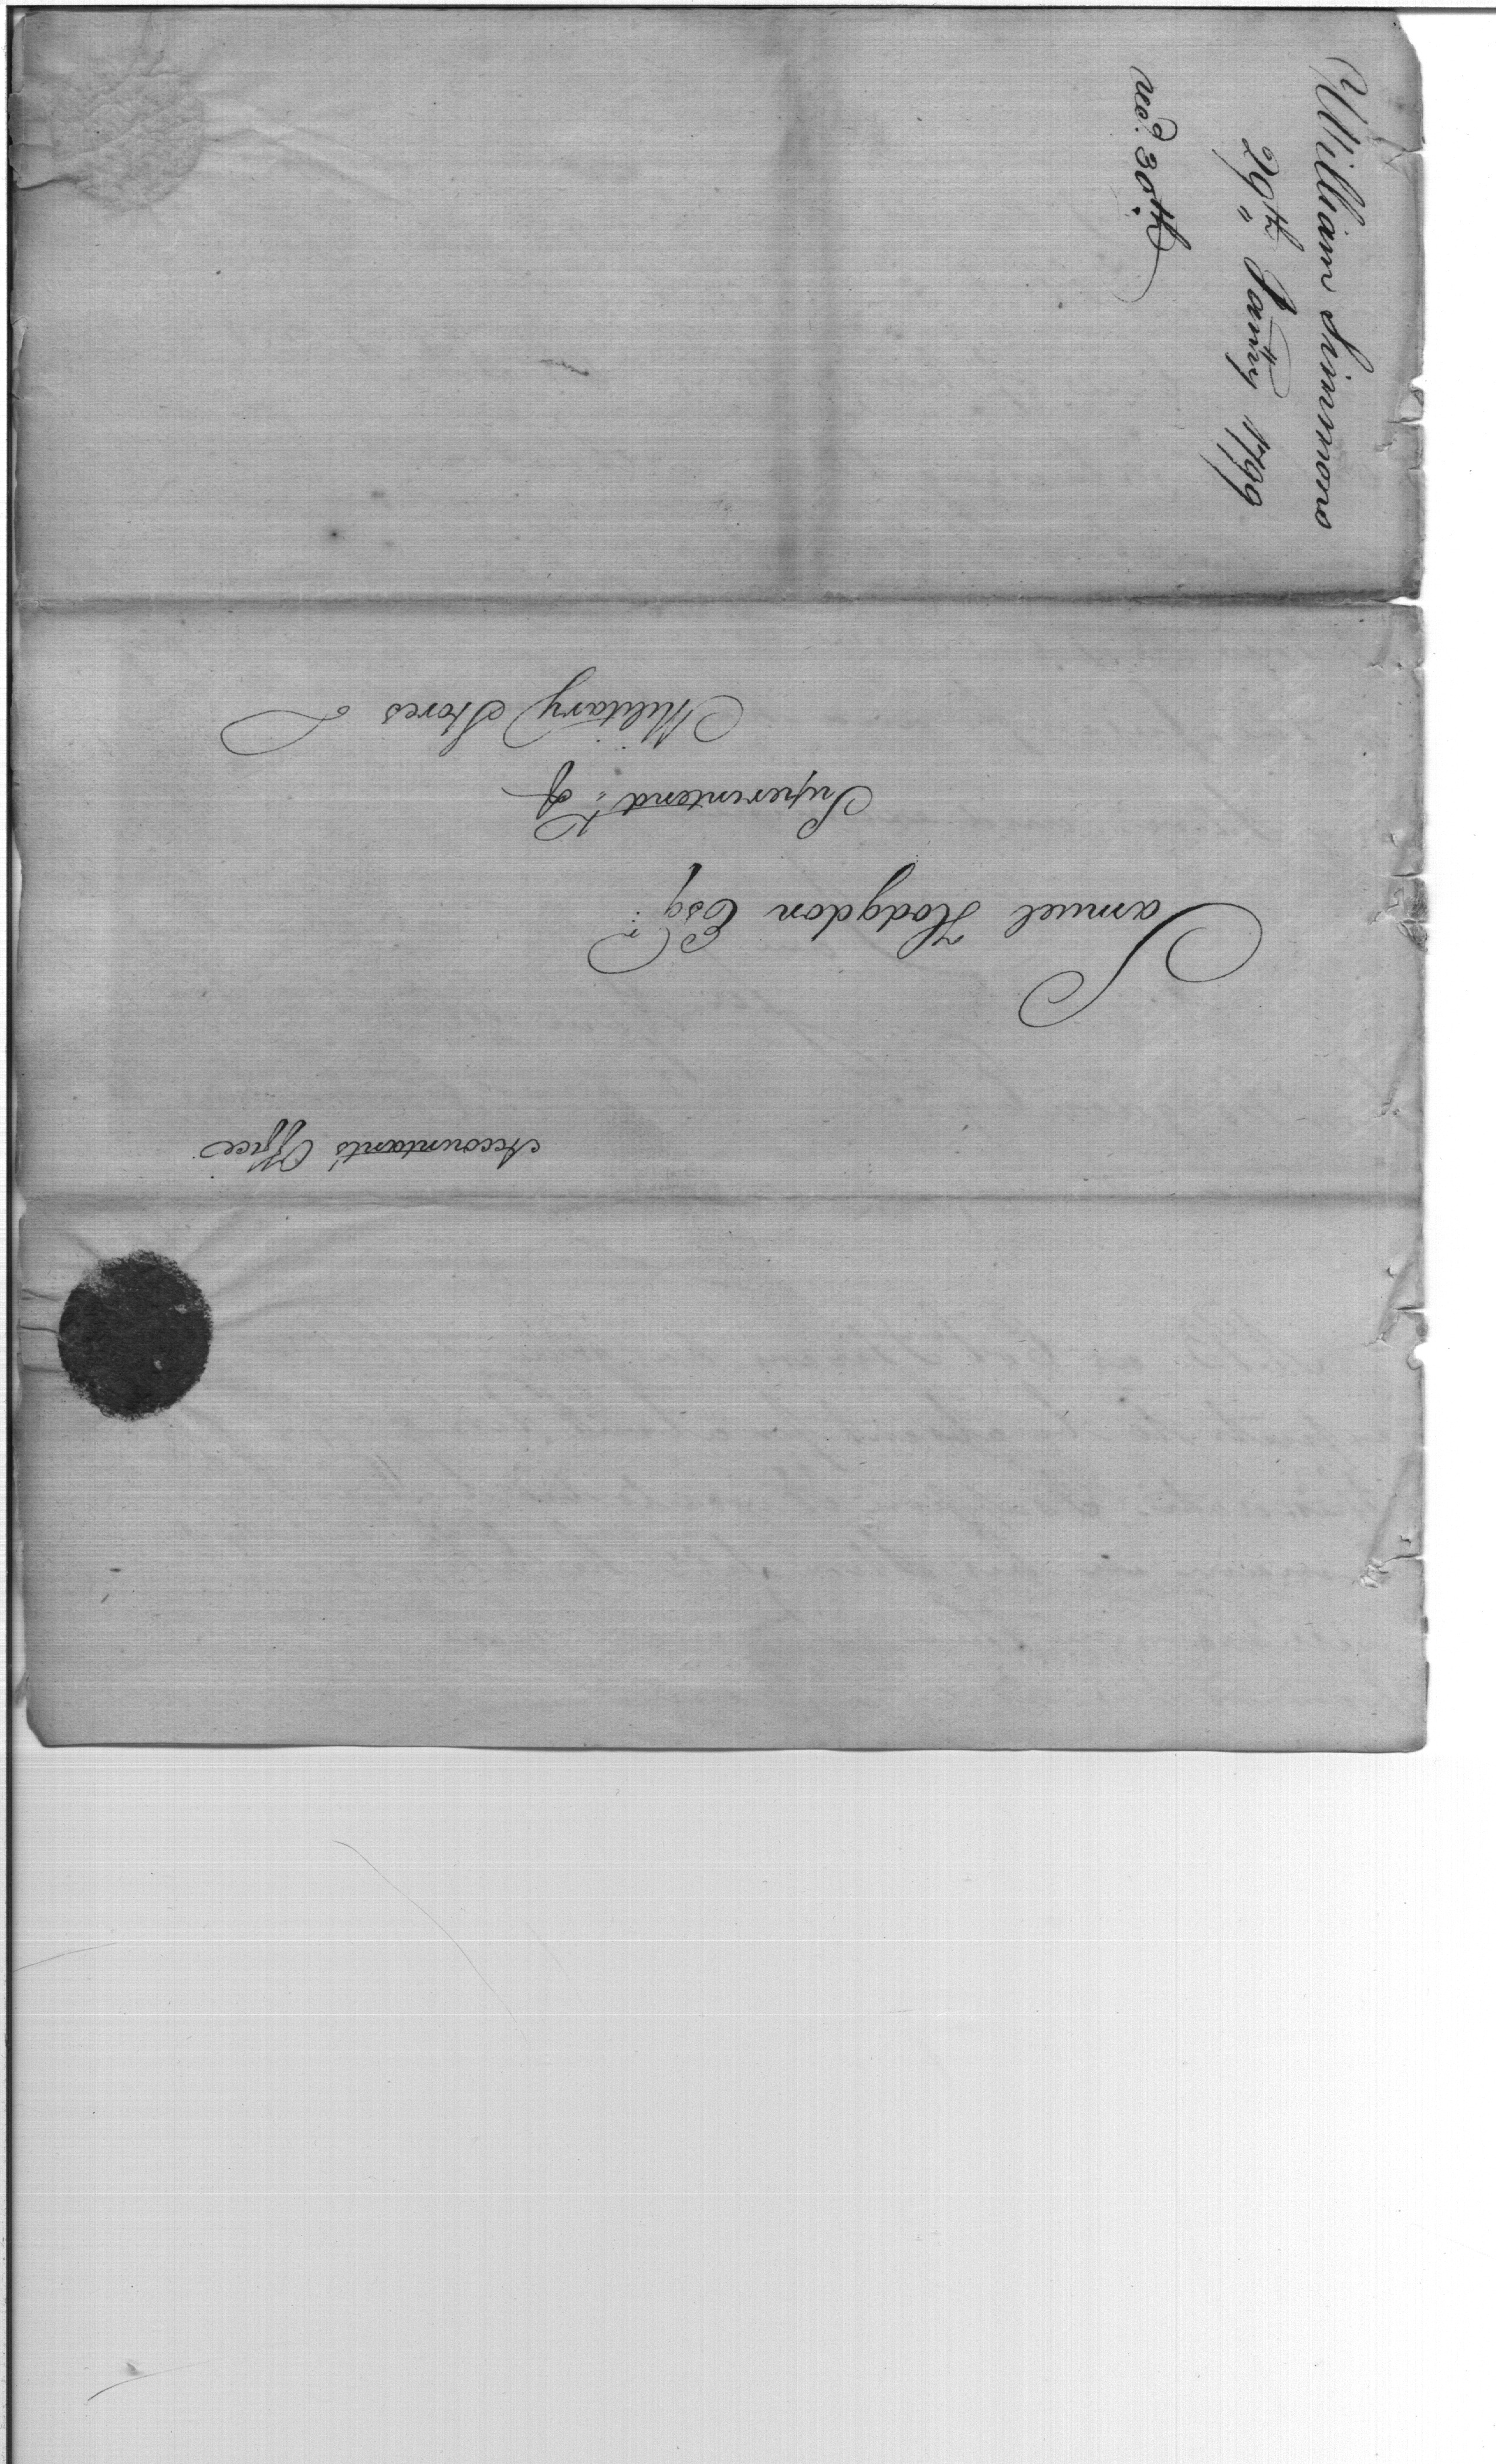 William Simmons
29th Janry 1799
recd. 30th
Accountant's Office
Samuel Hodgdon Esqr.
Superintendt. of
Military Stores